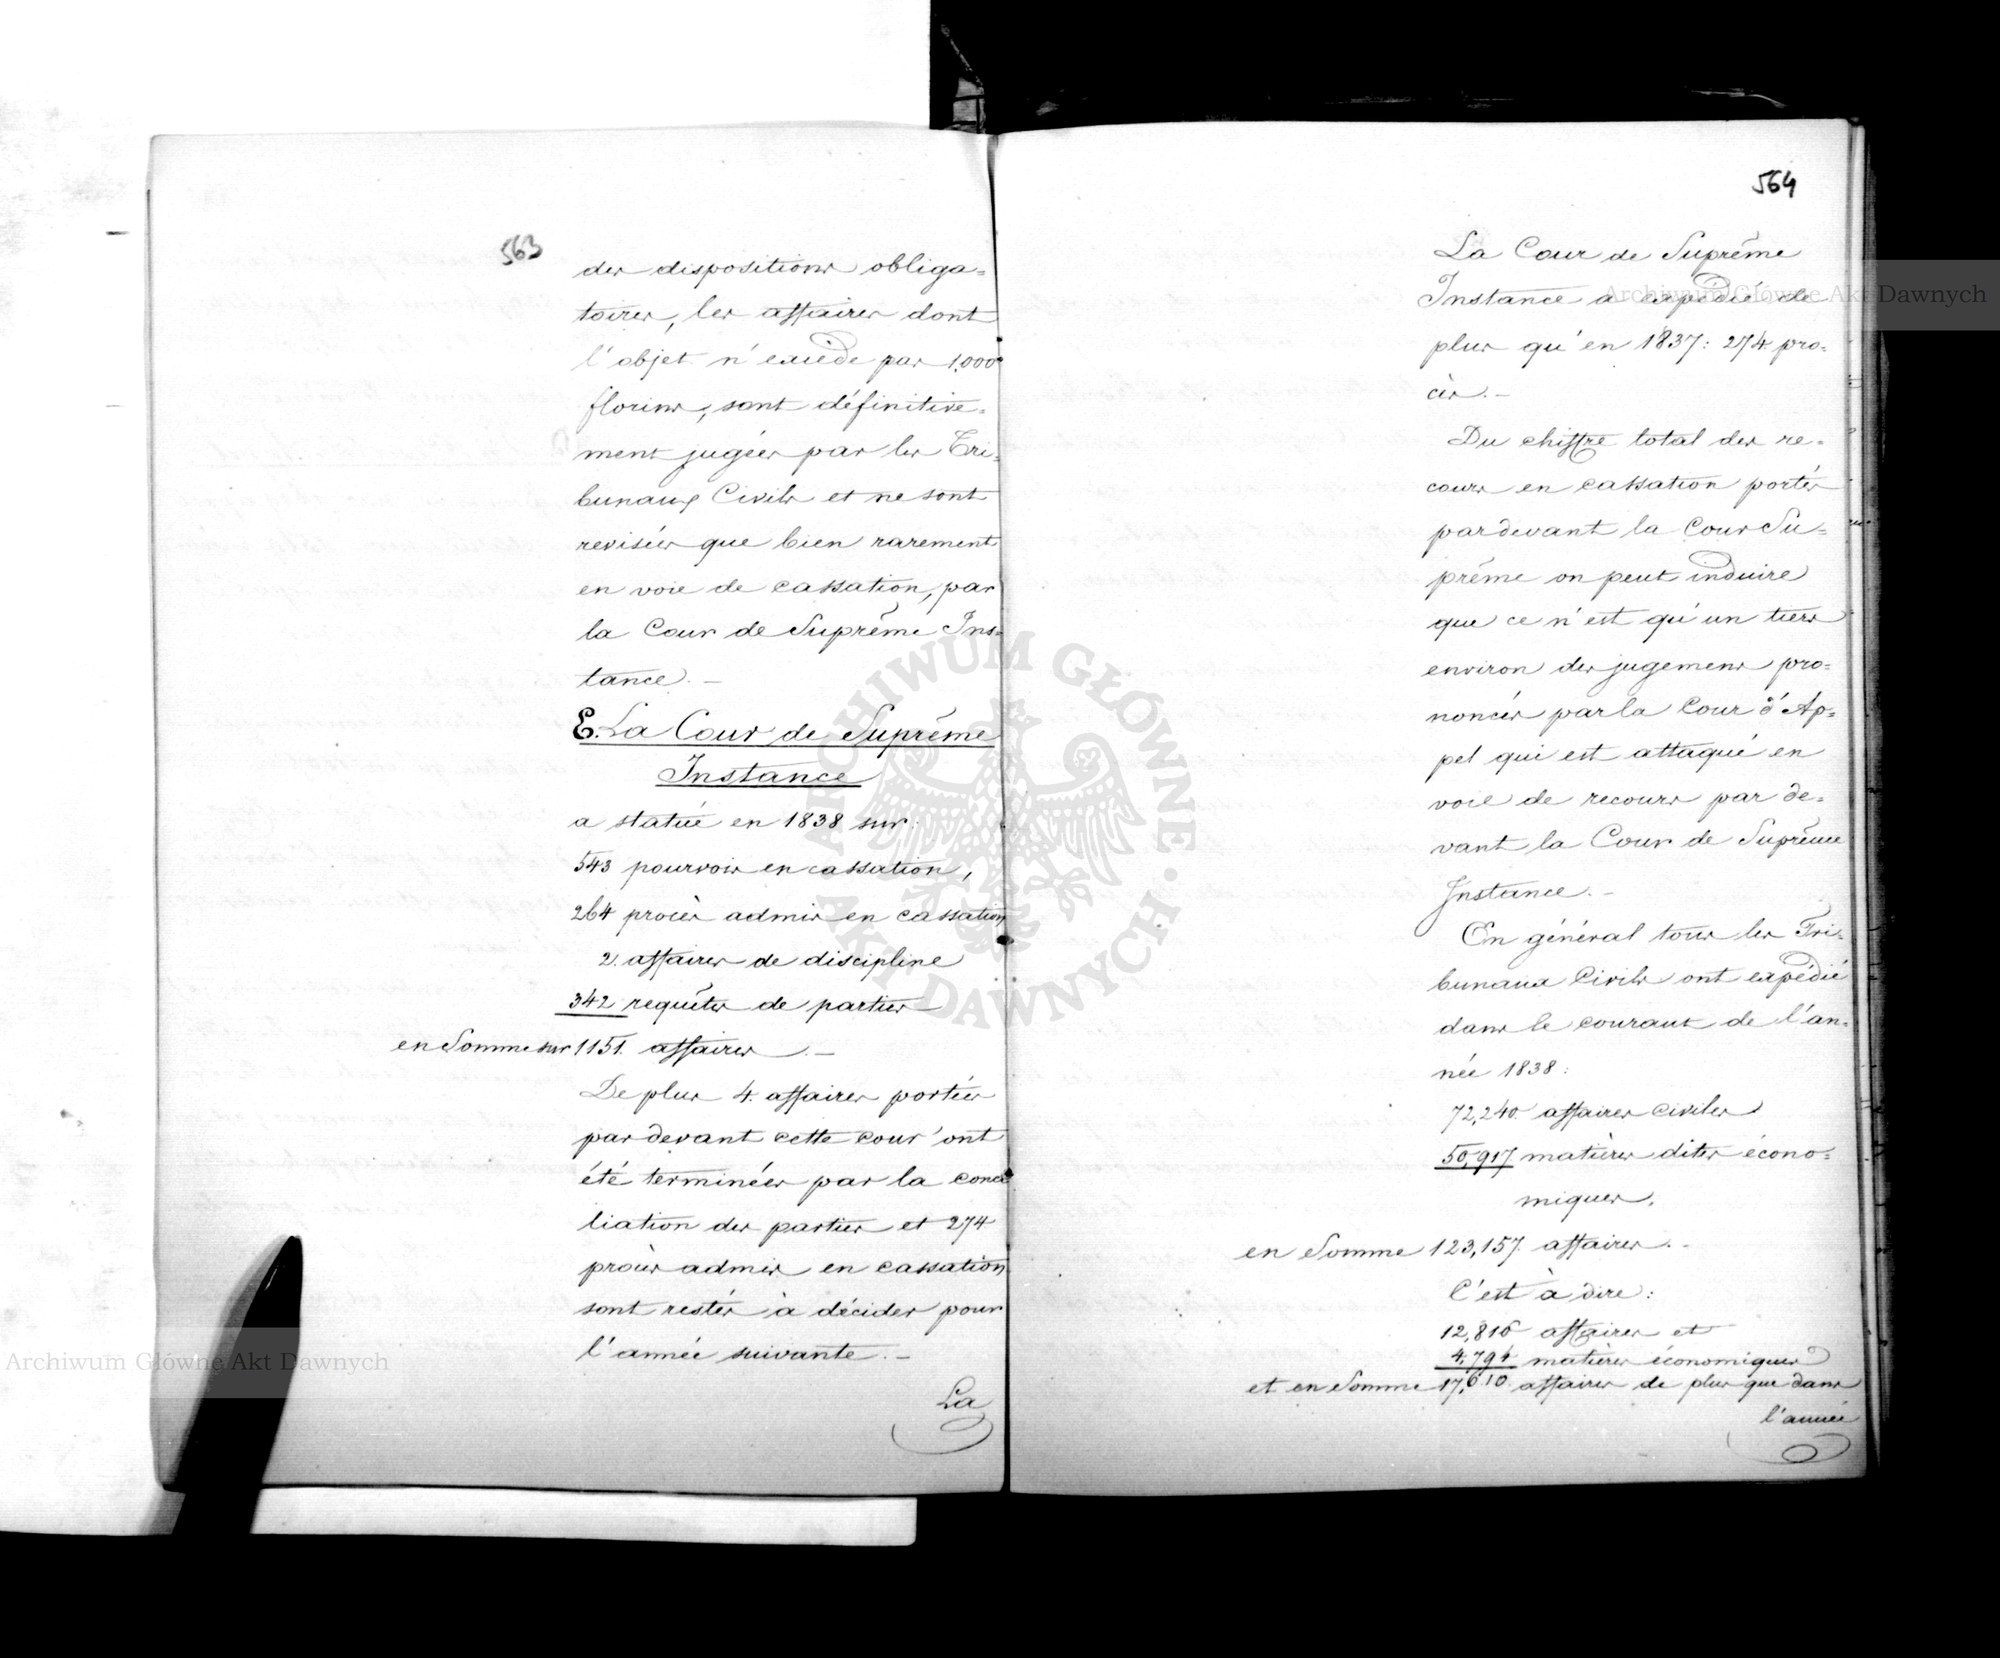 563
des dispositions obliga=
toires, les affaires dont
l'objet n'excède pas 1,000
florins, sont définitive=
ment jugées par les Tri=
bunaux Civils et ne sont
revisées que bien rarement
en voie de cassation, par
la Cour de Suprême Ins=
tance. —
E. La Cour de Suprême
Instance
a statué en 1838 sur:
543 pourvois en cassation,
264 procès admis en cassation
2. affaires de discipline
342 requêtes de parties
en Somme sur 1151. affaires. —
De plus 4. affaires portées
pardevant cette cour ont
été terminées par la conci
liation des parties et 274
procès admis en cassation
sont restés à décider pour
l'année suivante. —
La
564
La Cour de Suprême
Instance a expédié de
plus qu'en 1837: 274 pro=
cès. —
Du chiffre total des re=
cours en cassation portés
pardevant la Cour Su=
prême on peut induire
que ce n'est qu'un tiers
environ des jugemens pro=
noncés par la Cour d'Ap=
pel qui est attaqué en
voie de recours par de=
vant la Cour de Suprême
Instance. —
En général tous les Tri=
bunaux Civils ont expédié
dans le courant de l'an=
née 1838:
72,240 affaires civiles
50,917 matières dites écono=
miques,
en Somme 123,157. affaires. —
C'est à dire:
12,816 affaires et
4,794 matières économiques
et en Somme 17,610 affaires de plus que dans
l'année
Archiwum Główne Akt Dawnych
Archiwum Główne Akt Dawnych
ARCHIWUM GŁÓWNE · AKT DAWNYCH ·